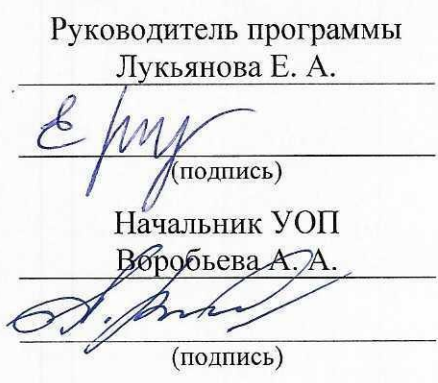 Руководитель программы
Лукьянова Е. А.
(подпись)
Начальник УОП
Воробьева А. А.
(подпись)